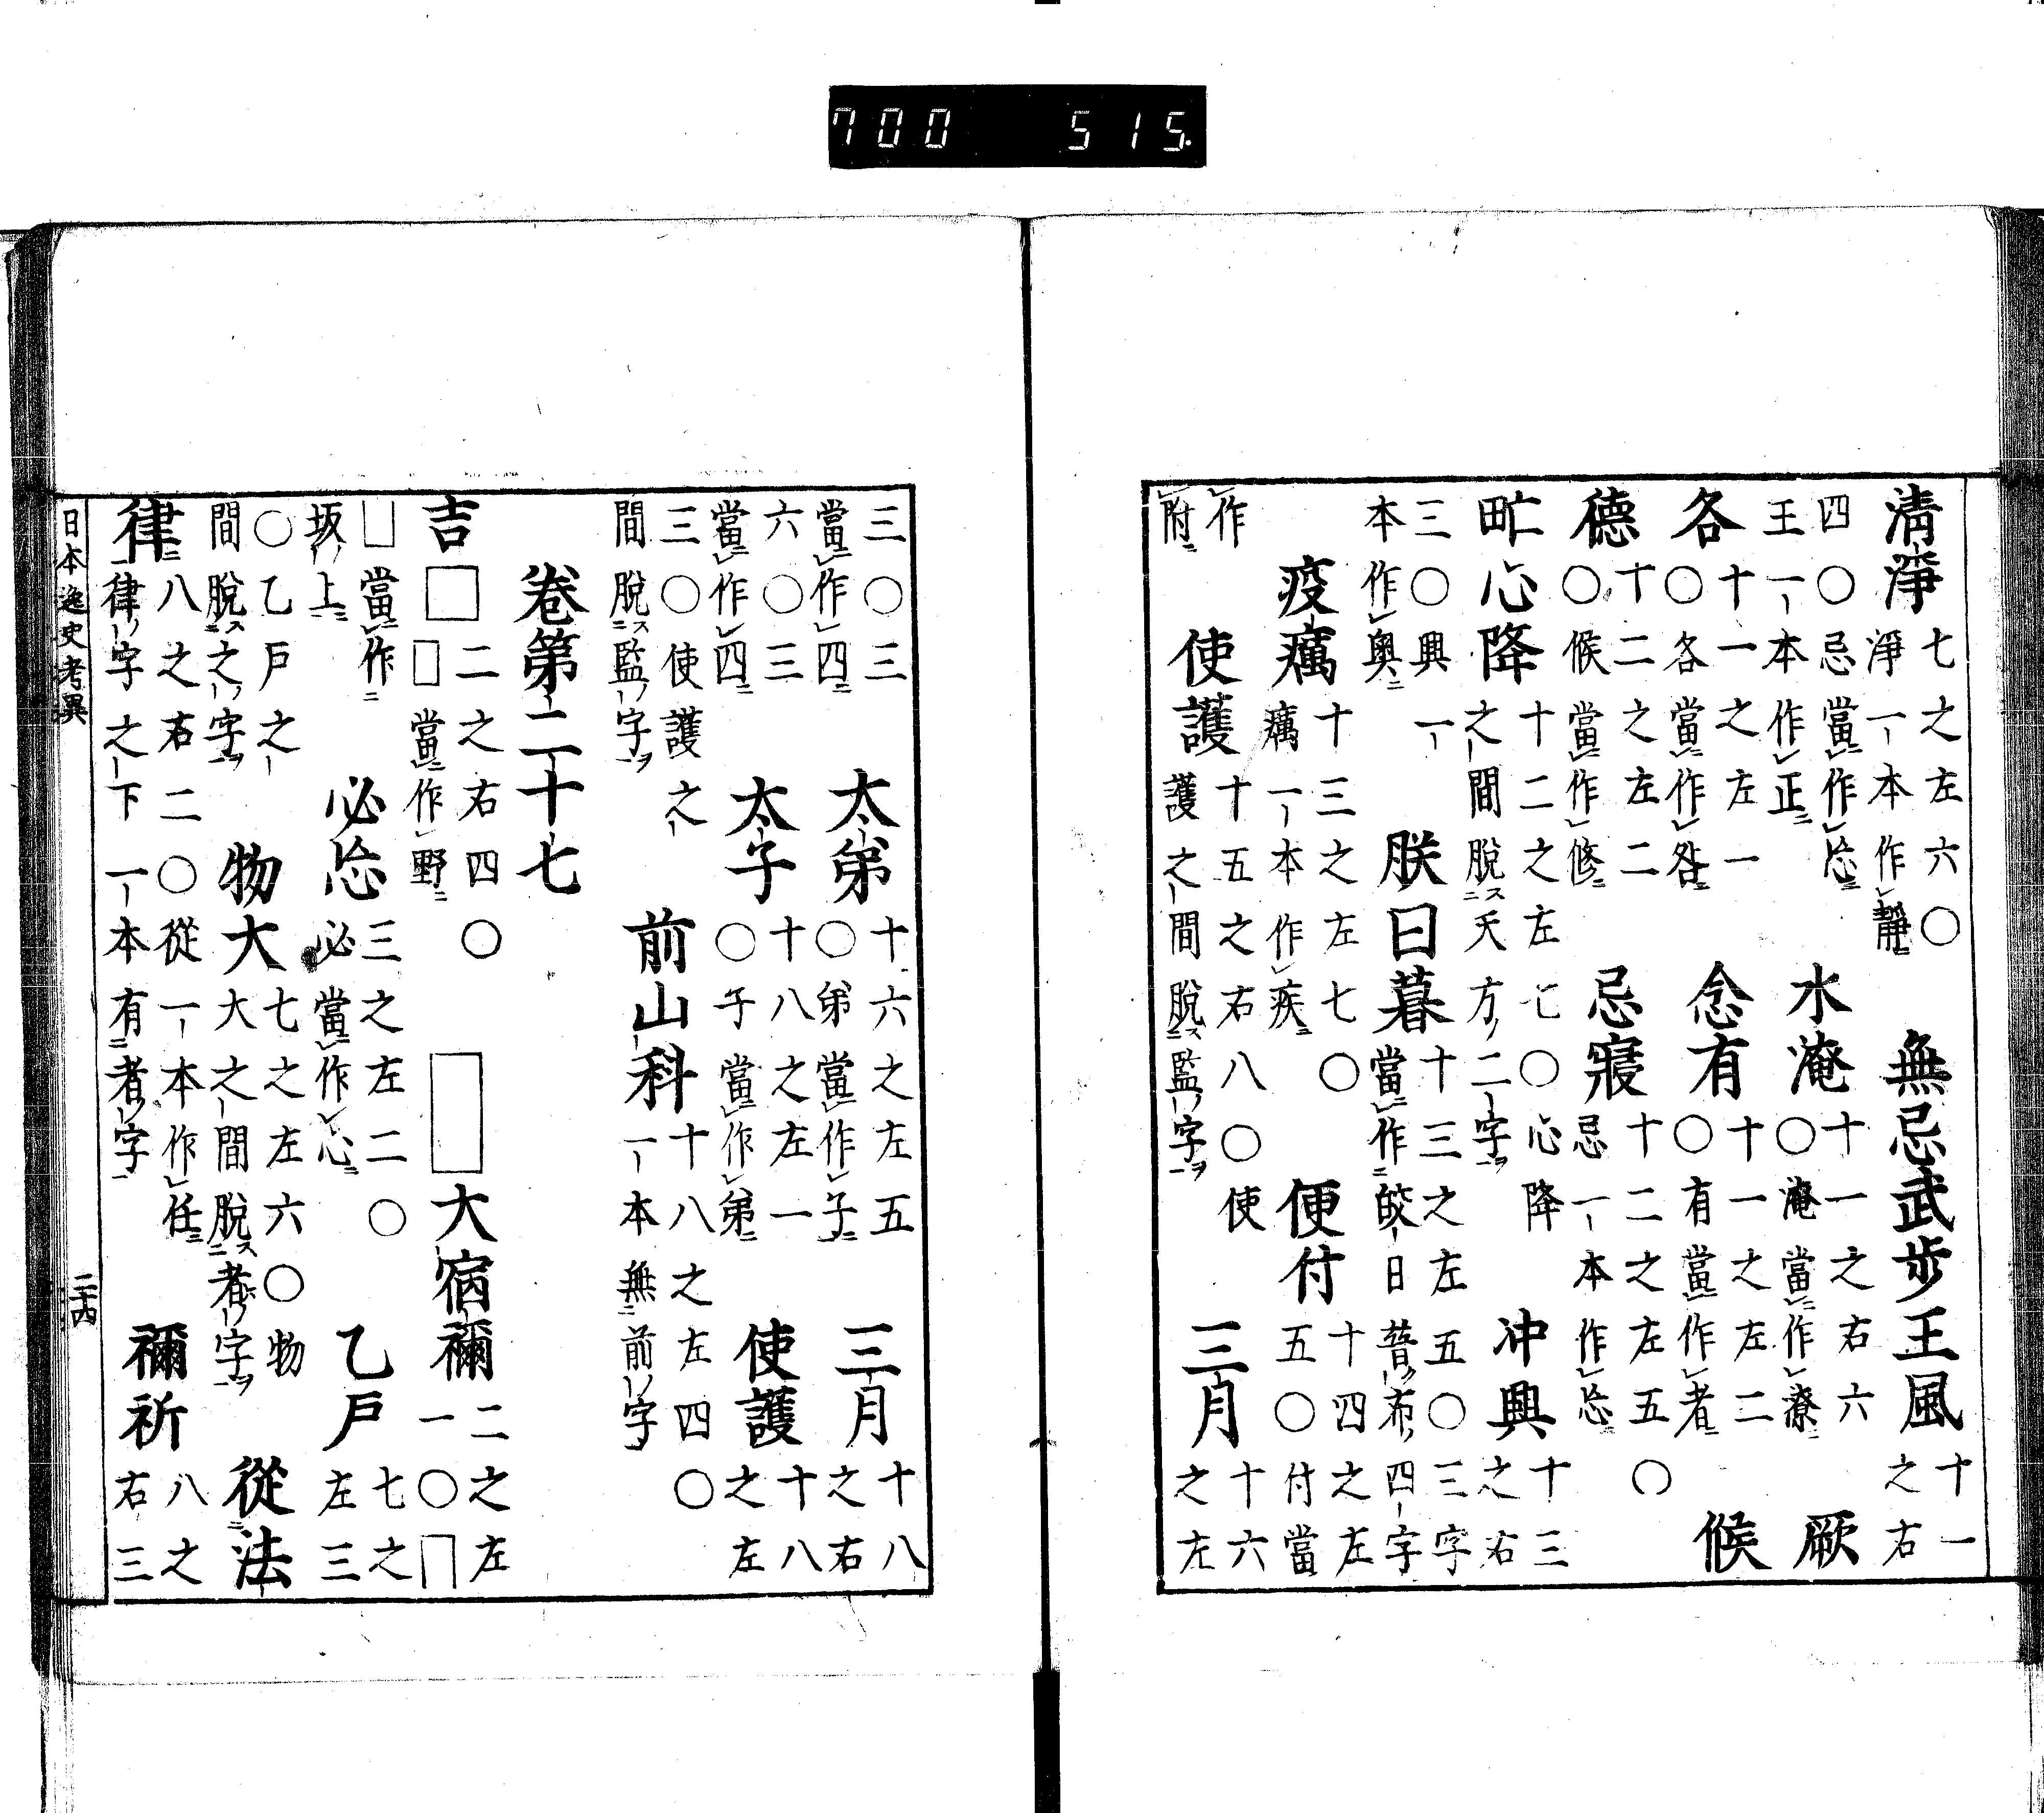 清淨七之左六〇淨一本作靜無忌武步王風十一之右
四〇忌當作忩王一本作正水淹十一之右六〇淹當作潦厥
各十一之左一〇各當作咎念有十一之左二〇有當作者候
德十二之左二〇候當作修忌寢十二之左五〇忌一本作忩
甿心降十二之左七〇心降之間脫天方ノ二字ヲ冲興十三之右
三〇興一本作奥朕日暮十三之左五〇三字當作皎日昔布四字
疫癘十三之左七〇癘一本作疾便付十四之左五〇付當
作附使護十五之右八〇使護之間脫監ノ字ヲ三月十六之左
三〇三當作四太弟十六之左五〇弟當作子三月十八之右
六〇三當作四太子十八之左一〇子當作弟使護十八之左
三〇使護之間脫監ノ字ヲ前山科十八之左四〇一本無前ノ字
卷第二十七
吉□二之右四〇□當作野□大宿禰二之左一〇□
□當作坂上必忩三之左二〇必當作心乙戸七之左三
〇乙戸之間脫之ノ字ヲ物大七之左六〇物大之間脫者ノ字ヲ從法
律八之右二〇從一本作任律ノ字之下一本有者ノ字禰祈八之右三
日本逸史考異 二十四
700 515.